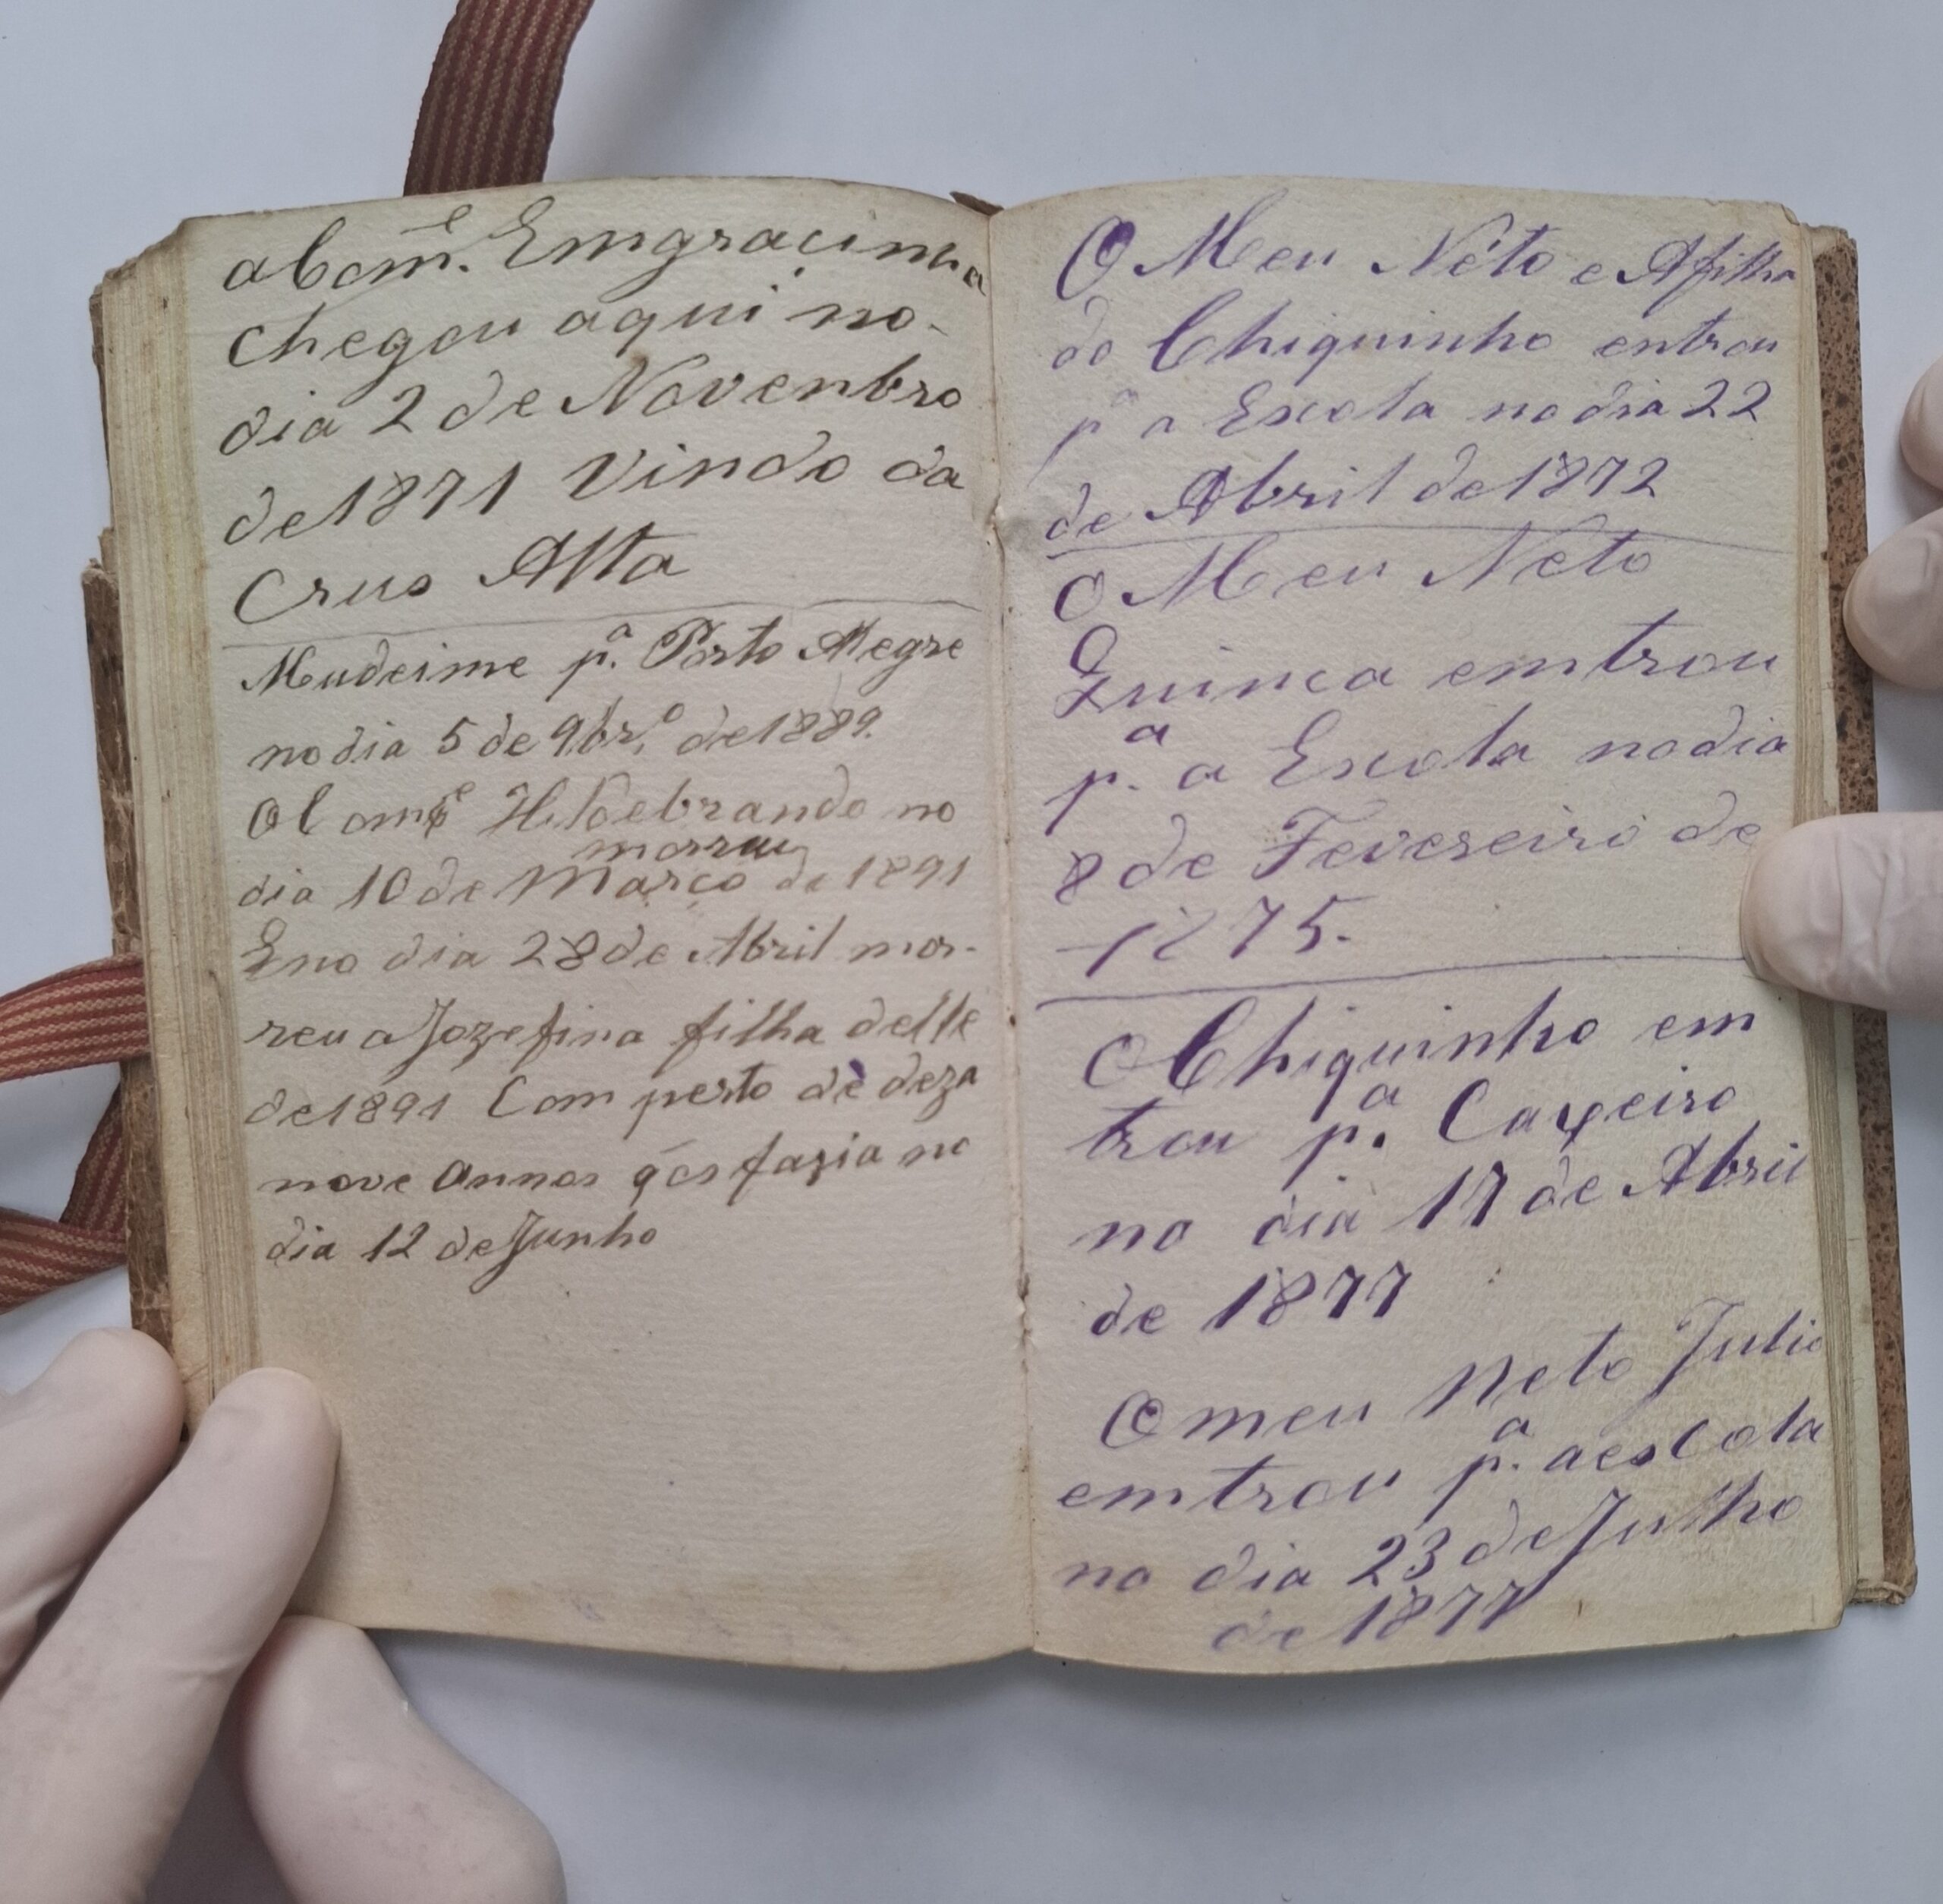 a Com.e Emgracinha
chegou aqui no-
dia 2 de Novenbro
de 1871 Vindo da
Crus Alta
Mudeime p.a Porto Alegre
no dia 5 de 9br.o de 1889.
O Com.e Hildebrando no
morreu
dia 10 de Março de 1891
E no dia 28 de Abril mor-
reu a Jozefina filha delle
de 1891 Com perto de deza
nove Annos q os fazia no
dia 12 de Junho
O Meu Néto e Afilha
do Chiquinho entrou
p.a a Escola no dia 22
de Abril de 1872
O Meu Neto
Quinca emtrou
p.a a Escola no dia
8 de Fevereiro de
1875.
O Chiquinho em
trou p.a Caxeiro
no dia 17 de Abril
de 1877
O meu Neto Julio
emtrou p.a a escola
no dia 23 de Julho
de 1877